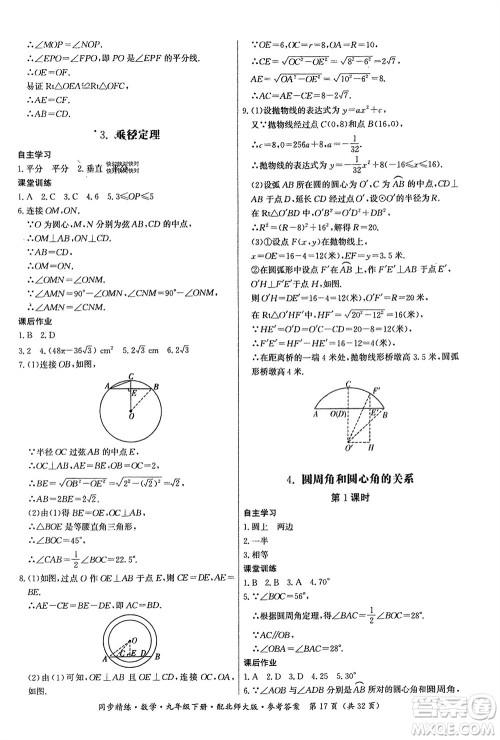 ∴∠MOP=∠NOP.
∴∠EPO=∠FPO,即 PO 是∠EPF 的平分线.
∴OE=OF.
易证 Rt△OEA≌Rt△OFD.
∴OA=OD.
3. 垂径定理
自主学习
1.平分 平分 2.垂直
课堂训练
1.A 2.C 3.24 4.2 5.3≤OP≤5
6.连接 OM,ON.
∵O 为圆心,M,N 分别为弦 AB,CD 的中点,
∴OM⊥AB,ON⊥CD.
∵AB=CD,
∴OM=ON.
∴∠OMN=∠ONM.
∵∠AMN=90°-∠OMN,∠CNM=90°-∠ONM,
∴∠AMN=∠CNM.
课后作业
1.B 2.A
3.2 4.(48π-36√3) cm² 5.2√3 6.2√7
7.(1)连接 OB,如图,
C
A E B
O
∵半径 OC 过弦 AB 的中点 E,
∴OC⊥AB,AE=BE,∠BEO=∠AEC=90°.
∴BE=√(OB²-OE²)=√(2²-(√2)²)=√2.
(2)由(1)可得,BE=OE,OE⊥AB,
∴△BOE 是等腰直角三角形.
∴∠BOC=45°.
∴∠CAB=1/2∠BOC=22.5°.
8.(1)如图,过点 O 作 OE⊥AB 于点 E,则 CE=DE,AE=BE.
∴AE-CE=BE-DE,
即 AC=BD.
O
A C E D B
(2)由(1)可知,OE⊥AB 且 OE⊥CD,连接 OC,OA.
∵OE=6,
∴CE=√(OC²-OE²)=√(8²-6²)=2√7,
AE=√(OA²-OE²)=√(10²-6²)=8.
∴AC=AE-CE=8-2√7.
9.(1)设抛物线的表达式为 y=ax²+c,
又∵抛物线经过点 C(0,8)和点 B(16,0),
∴c=8,0=256a+8,a=-1/32.
∴抛物线的表达式为 y=-1/32x²+8(-16≤x≤16).
(2)设弧 AB 所在圆的圆心为 O′,C 为 AB 的中点,CO⊥AB 于点 O,延长 CO 经过 O′点,设⊙O′的半径为 R,
在 Rt△O′OB 中,O′B²=OO′²+OB²,
∴R²=(R-8)²+16²,解得 R=20.
(3)①设点 F(x,y)在抛物线上,
x=OE=16-4=12,EF=y=3.5(米).
②在圆弧形中设点 F′在 AB 上,作 F′E′⊥AB 于 E′,O′H⊥F′E′于 H,则 O′H=OE′=16-4=12(米),O′F′=R=20(米),
在 Rt△O′F′H 中,HF′=√(20²-12²)=16(米),
∵HE′=OO′=OC′-OC=20-8=12(米),
∴F′E′=HF′-HE′=16-12=4(米).
∴在距离桥的一端 4 米处,抛物线桥墩高 3.5 米,圆弧形桥墩高 4 米.
C F′
A O E′ B
O′ H
4. 圆周角和圆心角的关系
第 1 课时
自主学习
1.圆上 两边
2.一半
3.相等
课堂训练
1.B 2.A 3.D 4.70°
5.∵∠BOC=56°,
∴根据圆周角定理,得∠BAC=1/2∠BOC=28°.
∵AC//OB,
∴∠OBA=∠BAC=28°.
课后作业
1.B 2.D 3.A 4.B
同步精练·数学·九年级下册·配北师大版·参考答案 第 17 页(共 32 页)